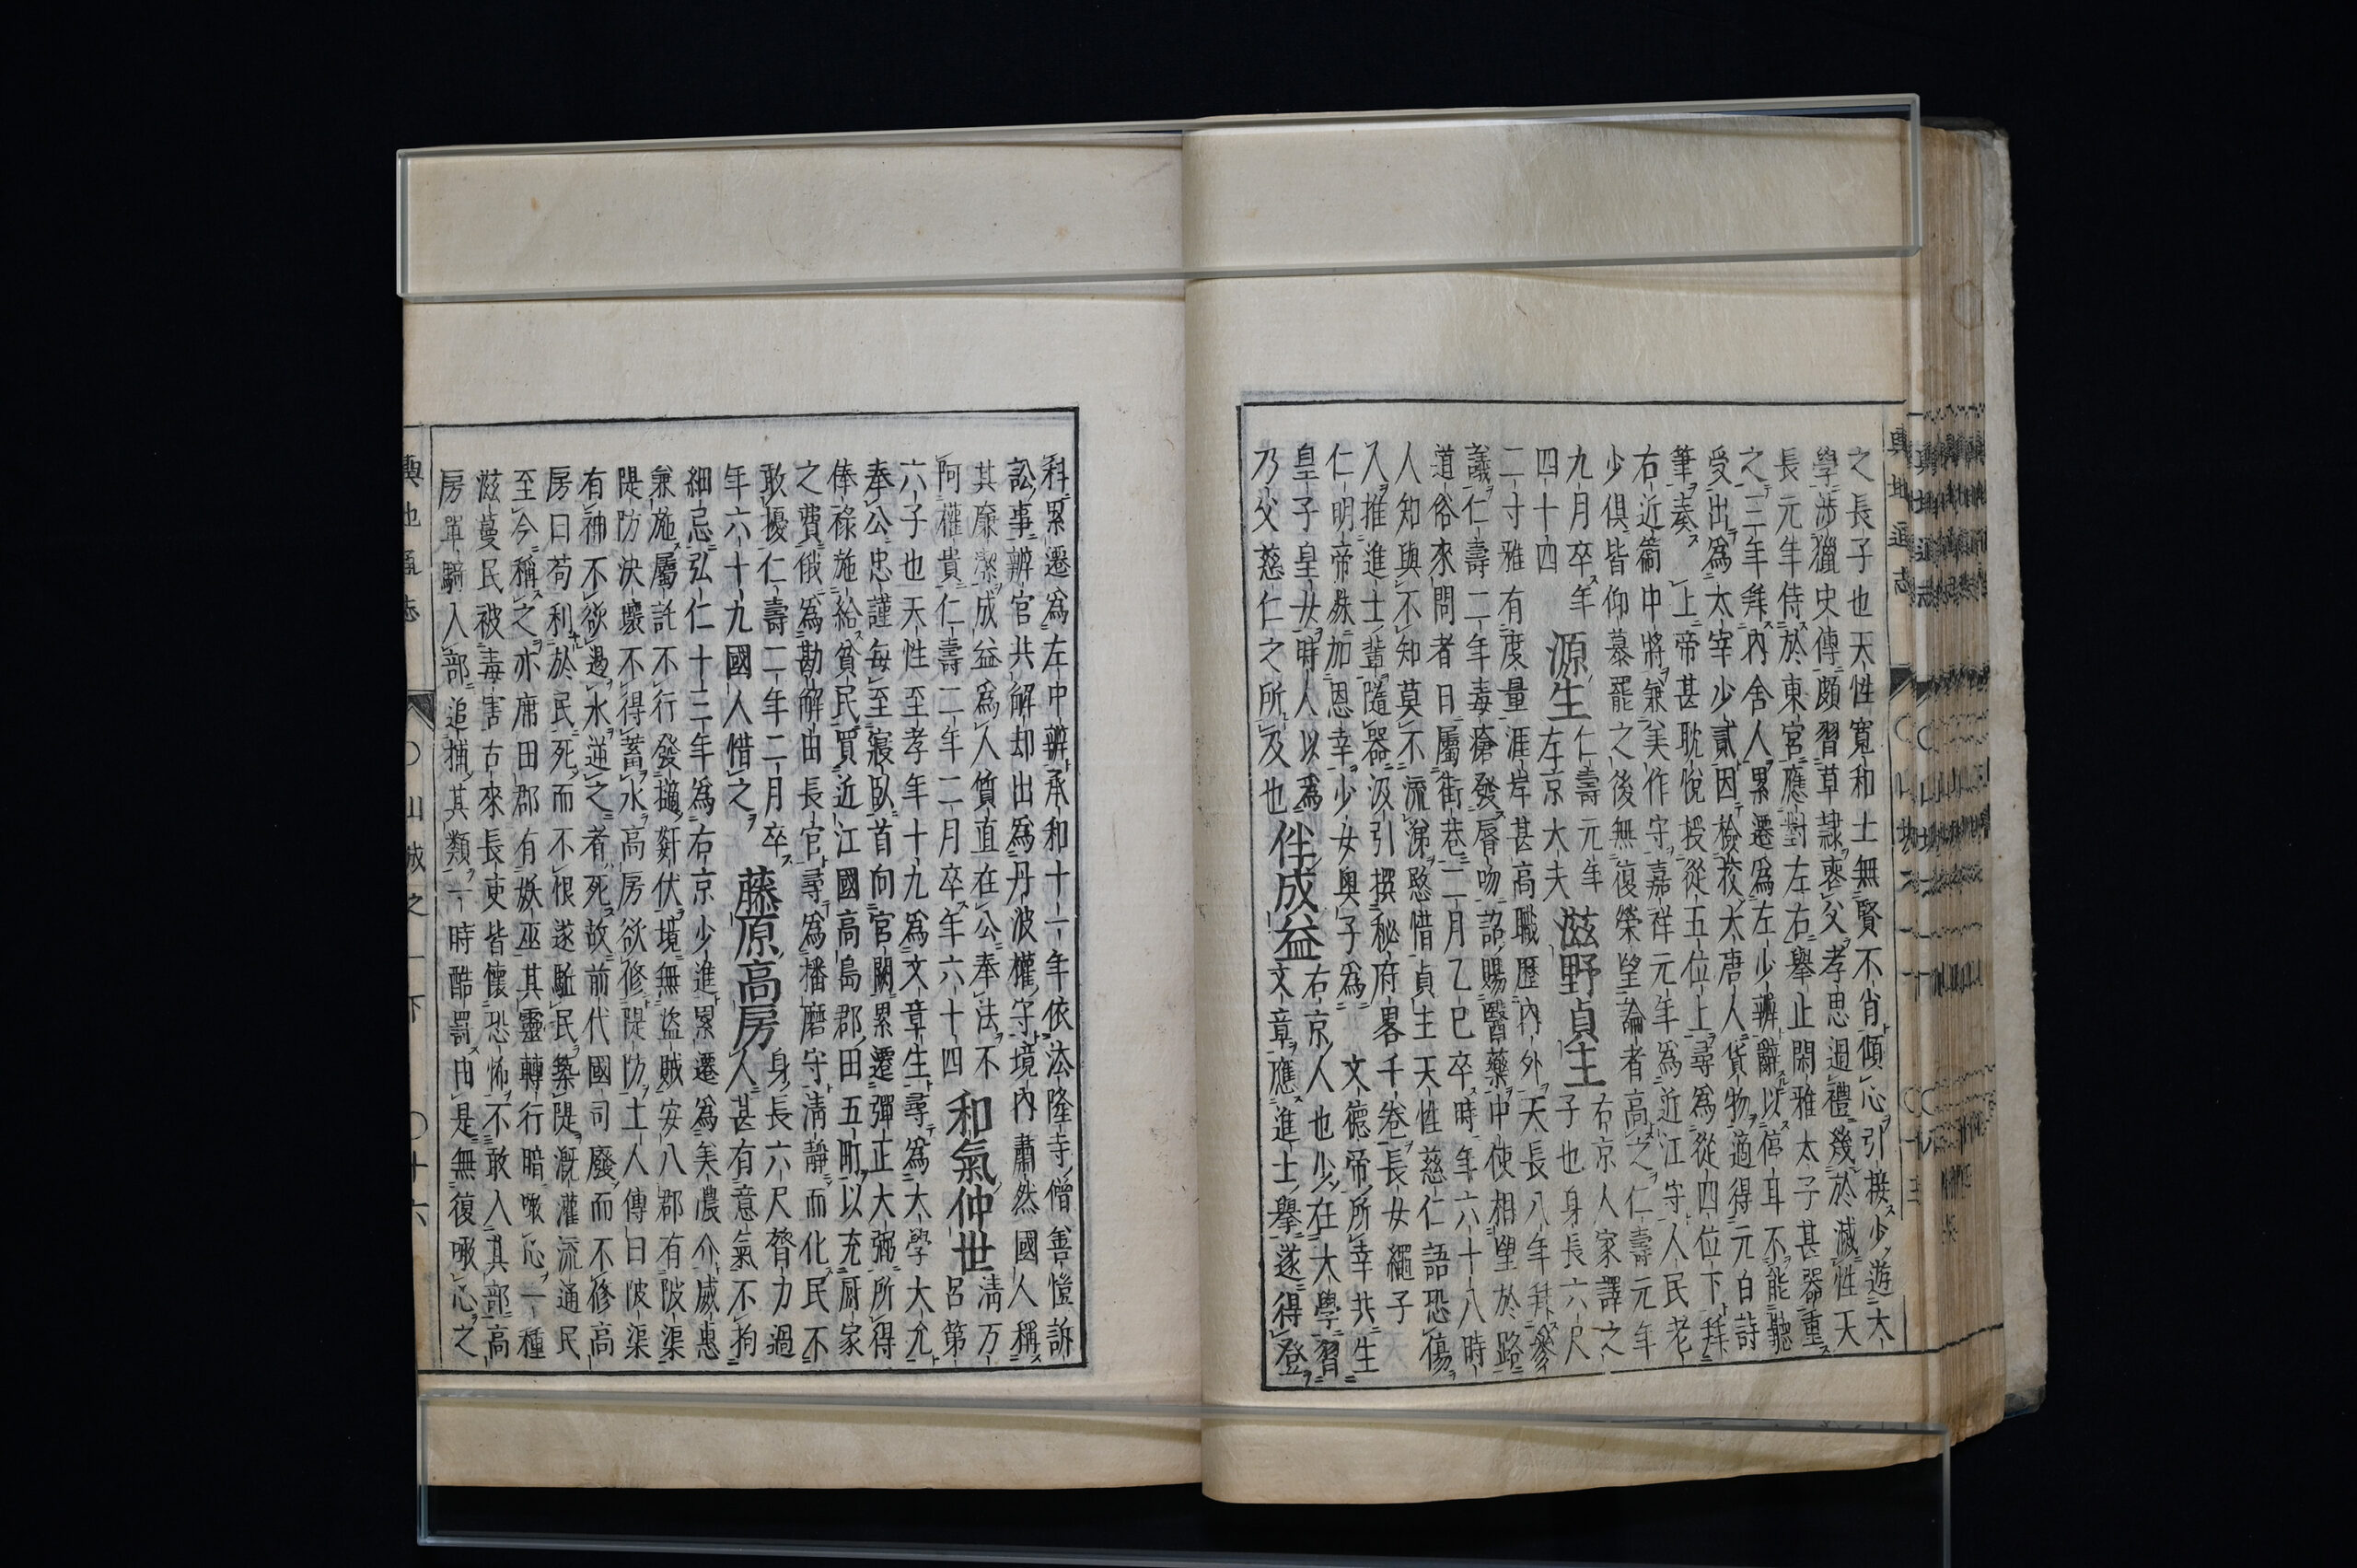 之長子也天性寬和士無賢不肖傾心引接少遊大
學涉獵史傳頗習草隷喪父孝思過禮幾於滅性天
長元年侍於東宮應對左右舉止閑雅太子甚器重
之三年拜內舍人累遷爲左少辨辭以信耳不能聽
受出爲太宰少貳因檢挍大唐人貨物適得元白詩
筆奏上帝甚耽悅授從五位上尋爲從四位下拜
右近衞中將兼美作守嘉祥元年爲近江守人民老
少俱皆仰慕罷之後無復榮望論者高之仁壽元年
九月卒年四十四
源生 仁壽元年左京大夫
滋野貞主 右京人家譯之子也身長六尺
二寸雅有度量涯岸甚高職歷內外天長八年拜參
議仁壽二年毒瘡發脣吻詔賜醫藥中使相望於路
道俗來問者日屬街巷二月乙巳卒時年六十八時
人知與不知莫不流涕愍惜貞主天性慈仁語恐傷
人推進士輩隨器汲引撰秘府畧千卷長女繩子
仁明帝殊加恩幸少女奧子爲文德帝所幸共生
皇子皇女時人以爲乃父慈仁之所及也
伴成益 右京人也少在大學習文章應進士擧遂得登
科累遷爲左中辨承和十一年依法隆寺僧善愷訴
訟事辨官共解却出爲丹波權守境內肅然國人稱
其廉潔成益爲人質直在公奉法不阿權貴仁壽二年二月卒年六十四
和氣仲世 淸万呂第六子也天性至孝年十九爲文章生尋爲太學大允
奉公忠謹每至寢臥首向官闕累遷彈正大弼所得
俸祿施給貧民買近江國高島郡田五町以充厨家
之費俄爲勘解由長官尋爲播磨守淸靜而化民不
敢擾仁壽二年二月卒年六十九國人惜之
藤原高房 身長六尺膂力過人甚有意氣不拘
細忌弘仁十三年爲右京少進累遷爲美濃介威惠
兼施屬託不行發擿姧伏境無盜賊安八郡有陂渠
隄防決壞不得蓄水高房欲修隄防土人傳曰陂渠
有神不欲遏水逆之者死故前代國司廢而不修高
房曰苟利於民死而不恨遂駈民築隄漑灌流通民
至今稱之亦席田郡有妖巫其靈轉行暗噉心一種
滋蔓民被毒害古來長吏皆懷恐怖不敢入其部高
房單騎入部追捕其類一時酷罰由是無復噉心之
輿地通志
〇山城之二下
〇十六